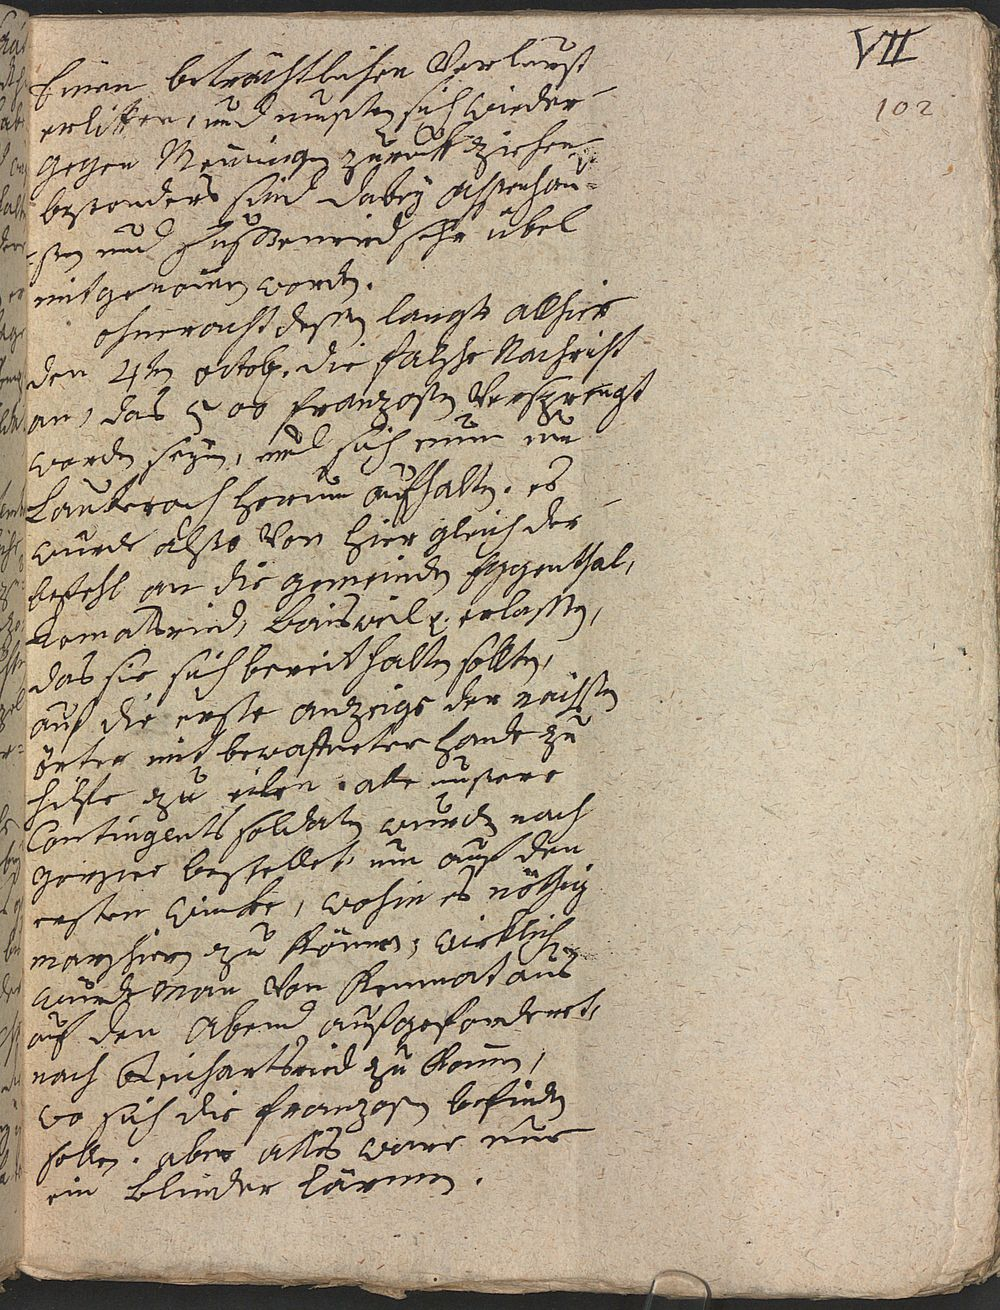 VII
102
Einen beträchtlichen Verlurst
erlitten, und musten sich wieder
gegen Meningen zuruk ziehen
besonders sind dabey Assenhau-
sen und Hussenried sehr übel
mitgenomen worden.
ohneracht dessen langte allhier
den 4ten octob. die falsche Nachricht
an, das 500 franzosen Versprengt
worden seyen, und sich nun um
Lauterach herum aufhalten. es
wurde also von hier gleich der
befehl an die gemeinden Eggenthal,
Romatsried, Baisweil &. erlassen,
das sie sich bereit halten sollten,
auf die erste anzeige der nächsten
örter mit bewafneter Hande zu
hilfe zu eilen. alle unsere
Contingents soldaten wurden nach
bestellet, um auf den
ersten winke, wohin es nöthig
marschiren zu können, wirklich
wurde man von Kemnat aus
auf den Abend aufgefordert,
nach Reichartsried zu kommen,
wo sich die franzosen befinden
sollen. aber alles ware nur
ein blinder Lärmen.